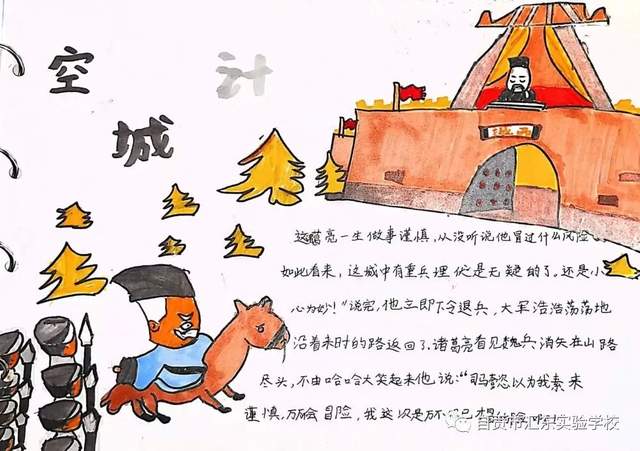 空城计
西城
这诸葛亮一生做事谨慎,从没听说他冒过什么风险。
如此看来,这城中有重兵埋伏是无疑的了。还是小
心为妙!"说完,他立即下令退兵,大军浩浩荡荡地
沿着来时的路返回了。诸葛亮看见魏兵消失在山路
尽头,不由哈哈大笑起来他说:"司马懿以为我素来
谨慎,不会冒险,我这次是不得已
自贡市汇东实验学校